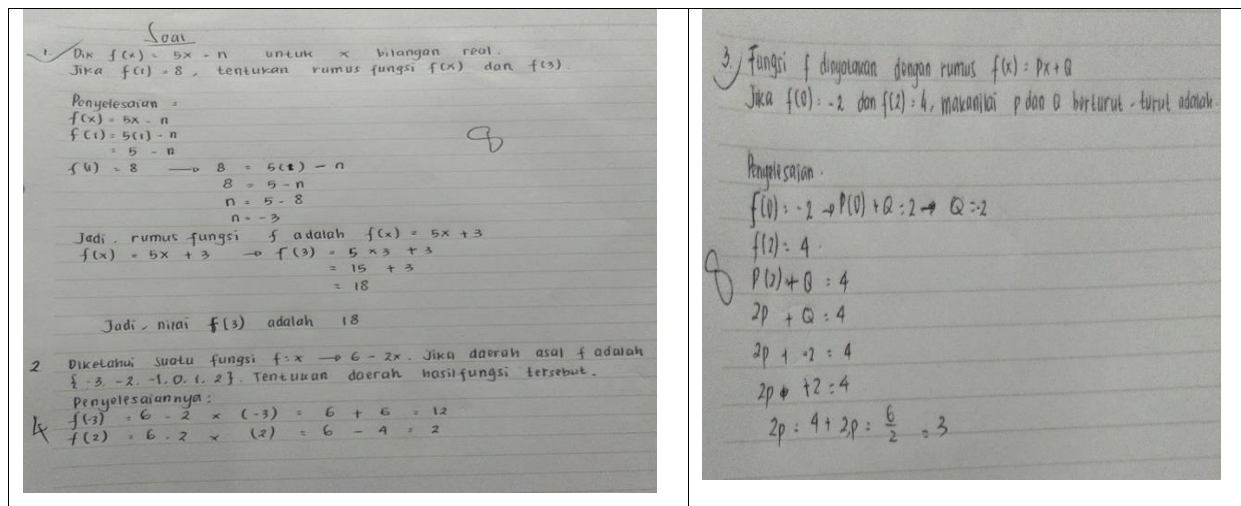 Soal
1. Dik f(x) = 5x - n untuk x bilangan real.
Jika f(1) = 8, tentukan rumus fungsi f(x) dan f(3).
Penyelesaian =
f(x) = 5x - n
f(1) = 5(1) - n
= 5 - n
8
f(1) = 8 → 8 = 5(1) - n
8 = 5 - n
n = 5 - 8
n = -3
Jadi, rumus fungsi f adalah f(x) = 5x + 3
f(x) = 5x + 3 → f(3) = 5 x 3 + 3
= 15 + 3
= 18
Jadi, nilai f(3) adalah 18
2 Diketahui suatu fungsi f: x → 6 - 2x. Jika daerah asal f adalah
{-3, -2, -1, 0, 1, 2}. Tentukan daerah hasil fungsi tersebut.
Penyelesaiannya:
f(-3) = 6 - 2 x (-3) = 6 + 6 = 12
4
f(2) = 6 - 2 x (2) = 6 - 4 = 2
3. Fungsi f dinyatakan dengan rumus f(x) = Px + Q
Jika f(0) = -2 dan f(2) = 4, maka nilai p dan Q berturut-turut adalah.
Penyelesaian.
f(0) = -2 → P(0) + Q = 2 → Q = -2
f(2) = 4.
8
P(2) + Q = 4
2p + Q = 4
2p + -2 = 4
2p +2 = 4
2p = 4 + 2p = 6/2 = 3